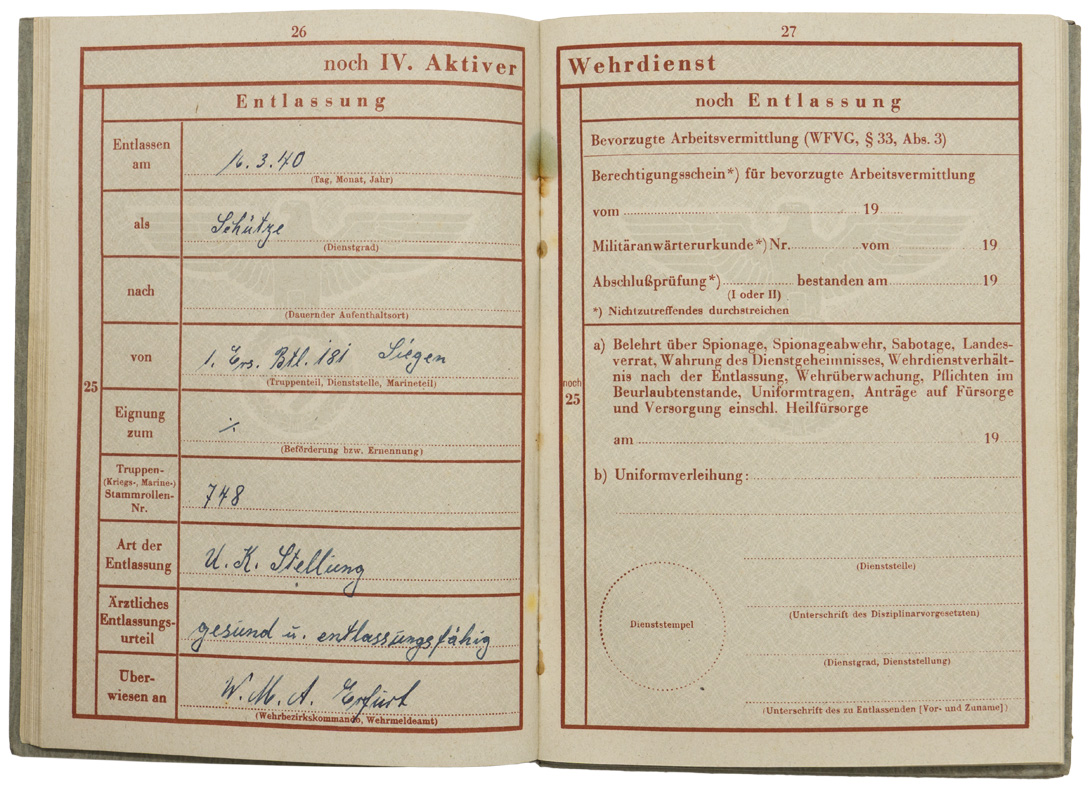 26
noch IV. Aktiver
Entlassung
Entlassen
am
16.3.40
(Tag, Monat, Jahr)
als
Schütze
(Dienstgrad)
nach
(Dauernder Aufenthaltsort)
von
1. Ers. Btl. 181 Siegen
(Truppenteil, Dienststelle, Marineteil)
25
Eignung
zum
./.
(Beförderung bzw. Ernennung)
Truppen-
(Kriegs-, Marine-)
Stammrollen-
Nr.
748
Art der
Entlassung
U. K. Stellung
Ärztliches
Entlassungs-
urteil
gesund u. entlassungsfähig
Über-
wiesen an
W. M. A. Erfurt
(Wehrbezirkskommando, Wehrmeldeamt)
27
Wehrdienst
noch Entlassung
Bevorzugte Arbeitsvermittlung (WFVG, § 33, Abs. 3)
Berechtigungsschein*) für bevorzugte Arbeitsvermittlung
vom 19
Militäranwärterurkunde*) Nr. vom 19
Abschlußprüfung*) bestanden am 19
(I oder II)
*) Nichtzutreffendes durchstreichen
noch
25
a) Belehrt über Spionage, Spionageabwehr, Sabotage, Landes-
verrat, Wahrung des Dienstgeheimnisses, Wehrdienstverhält-
nis nach der Entlassung, Wehrüberwachung, Pflichten im
Beurlaubtenstande, Uniformtragen, Anträge auf Fürsorge
und Versorgung einschl. Heilfürsorge
am 19
b) Uniformverleihung:
(Dienststelle)
(Unterschrift des Disziplinarvorgesetzten)
Dienststempel
(Dienstgrad, Dienststellung)
(Unterschrift des zu Entlassenden [Vor- und Zuname])